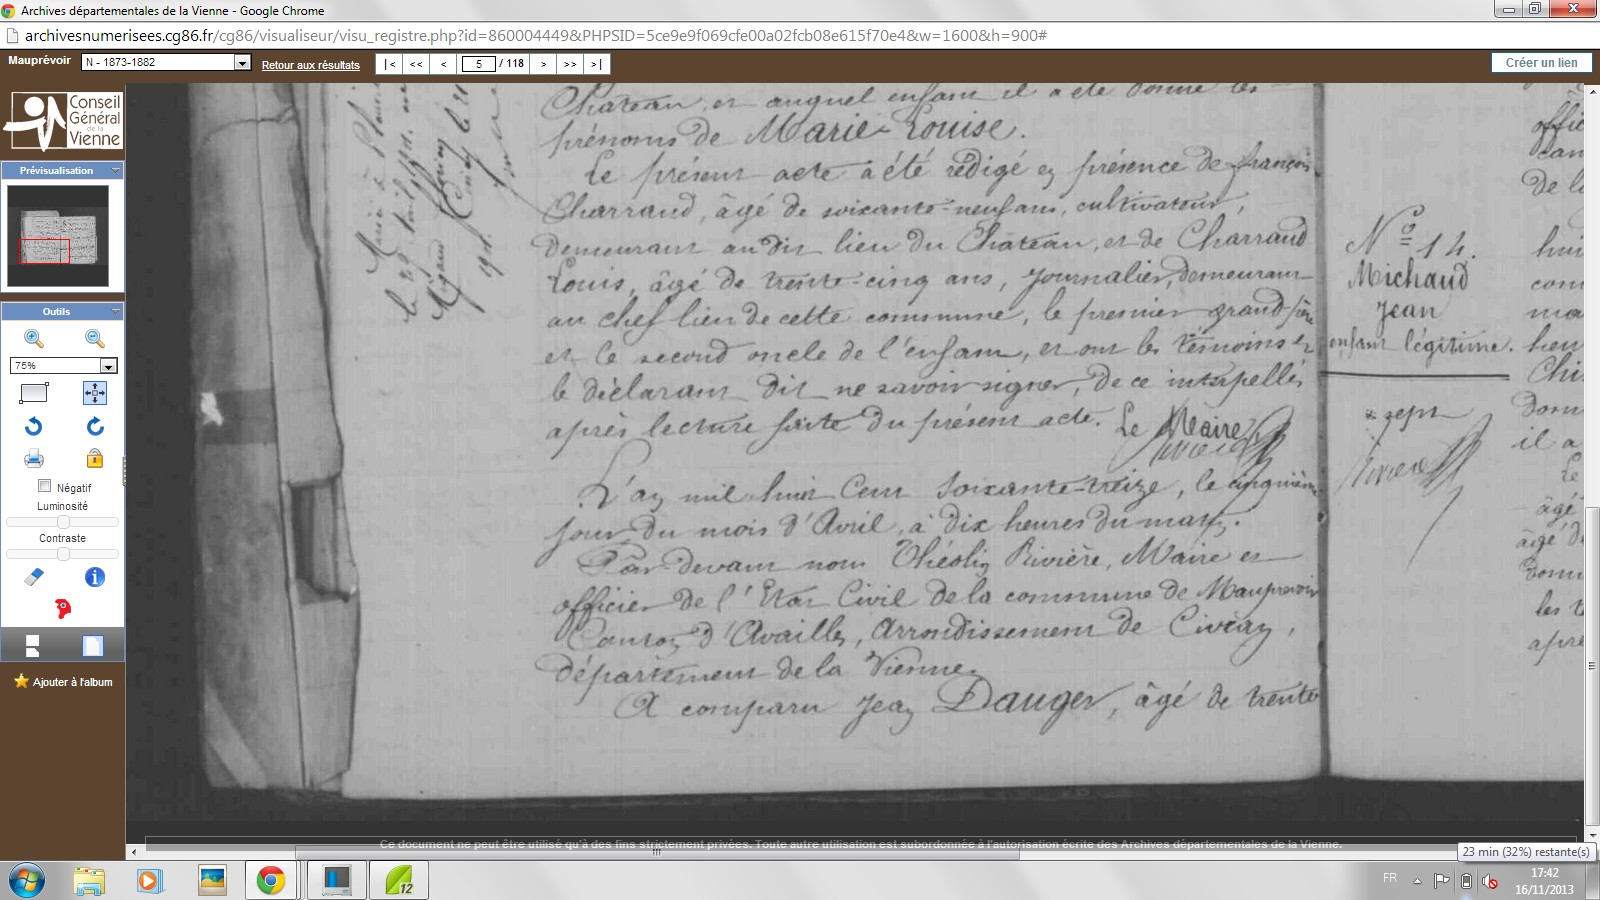 Archives départementales de la Vienne - Google Chrome
archivesnumerisees.cg86.fr/cg86/visualiseur/visu_registre.php?id=860004449&PHPSID=5ce9e9f069cfe00a02fcb08e615f70e4&w=1600&h=900#
Mauprévoir
N - 1873-1882
Retour aux résultats
|<
<<
<
5 / 118
>
>>
>|
Créer un lien
Conseil
Général
de la
Vienne
Prévisualisation
Outils
75%
Négatif
Luminosité
Contraste
Ajouter à l'album
Château, et auquel enfant il a été donné les
prénoms de Marie Louise.
Le présent acte a été rédigé en présence de françois
Charraud, âgé de soixante-neuf ans, cultivateur,
demeurant au dit lieu du Château, et de Charraud
Louis, âgé de trente-cinq ans, journalier, demeurant
au chef lieu de cette commune, le premier grand père
et le second oncle de l'enfant, et ont les témoins et
le déclarant dit ne savoir signer, de ce interpellés
après lecture faite du présent acte. Le Maire
Rivière
L'an mil huit cent soixante-treize, le cinquième
jour du mois d'Avril, à dix heures du matin.
Par devant nous Théolin Rivière, Maire et
officier de l'Etat Civil de la commune de Mauprévoir
Canton d'Availles, Arrondissement de Civray,
département de la Vienne.
A comparu Jean Dauger, âgé de trente
Nº 14.
Michaud
Jean
enfant légitime.
sept
Rivière
offic
can
de la
hui
com
ma
heu
Chi
Dom
il a
Le
âgé
âgé d
Dom
les t
apré
Ce document ne peut être utilisé qu'à des fins strictement privées. Toute autre utilisation est subordonnée à l'autorisation écrite des Archives départementales de la Vienne.
23 min (32%) restante(s)
12
FR
17:42
16/11/2013